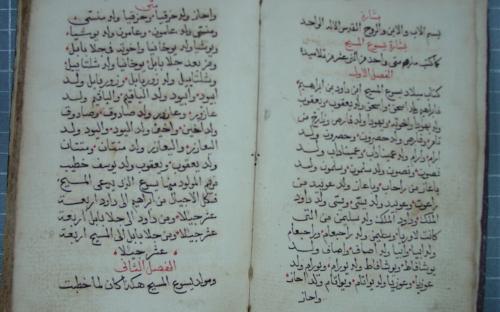 بشارة
بسم الاب والابن والروح القدس الاله الواحد
بشارة يسوع المسيح
كما كتب مار متى واحد من اثنى عشر من تلاميذه
الفصل الاول
كتاب ميلاد يسوع المسيح ابن داود بن ابراهيم
فابراهيم ولد اسحق واسحق ولد يعقوب ويعقوب
ولد يهوذا واخوته ويهوذا ولد فارص وزارح من
تامر وفارص ولد حصرون وحصرون ولد
ارام وارام ولد عميناداب وعميناداب ولد
نصون ونصون ولد سلمون وسلمون ولد
باعاز من راحاب وباعاز ولد عوبيد من
راعوث وعوبيد ولد يسى ويسى ولد داود
الملك وداود الملك ولد سليمن من التى
كانت لاوريا وسليمن ولد راجعام وراجعام
ولد ابيا وابيا ولد اصاف واصاف ولد
يوشافاط ويوشافاط ولد يورام ويورام ولد
عوزيا وعوزيا ولد يواثام ويواثام ولد احاز
واحاز
متى
واحاز ولد حزقيا وحزقيا ولد منسى
ومنسى ولد عامون وعامون ولد يوشيا
ويوشيا ولد يوخانيا واخوته فى جلا بابل
ومن بعد جلا بابل يوخانيا ولد شلتاييل
وشلتاييل ولد زوربابل وزوربابل ولد
ابيود وابيود ولد الياقيم والياقيم ولد
عازور وعازور ولد صادوق وصادوق
ولد اخين واخين ولد اليود واليود ولد
اليعازر واليعازر ولد متتان ومتتان
ولد يعقوب ويعقوب ولد يوسف خطيب
مريم المولود منها يسوع الذى يسمى المسيح
فكل الاجيال من ابراهيم الى داود اربعة
عشر جيلا ومن داود الى جلا بابل اربعة
عشر جيلا ومن جلا بابل الى المسيح اربعة
عشر جيلا
الفصل الثانى
ومولد يسوع المسيح هكذا كان لما خطبت